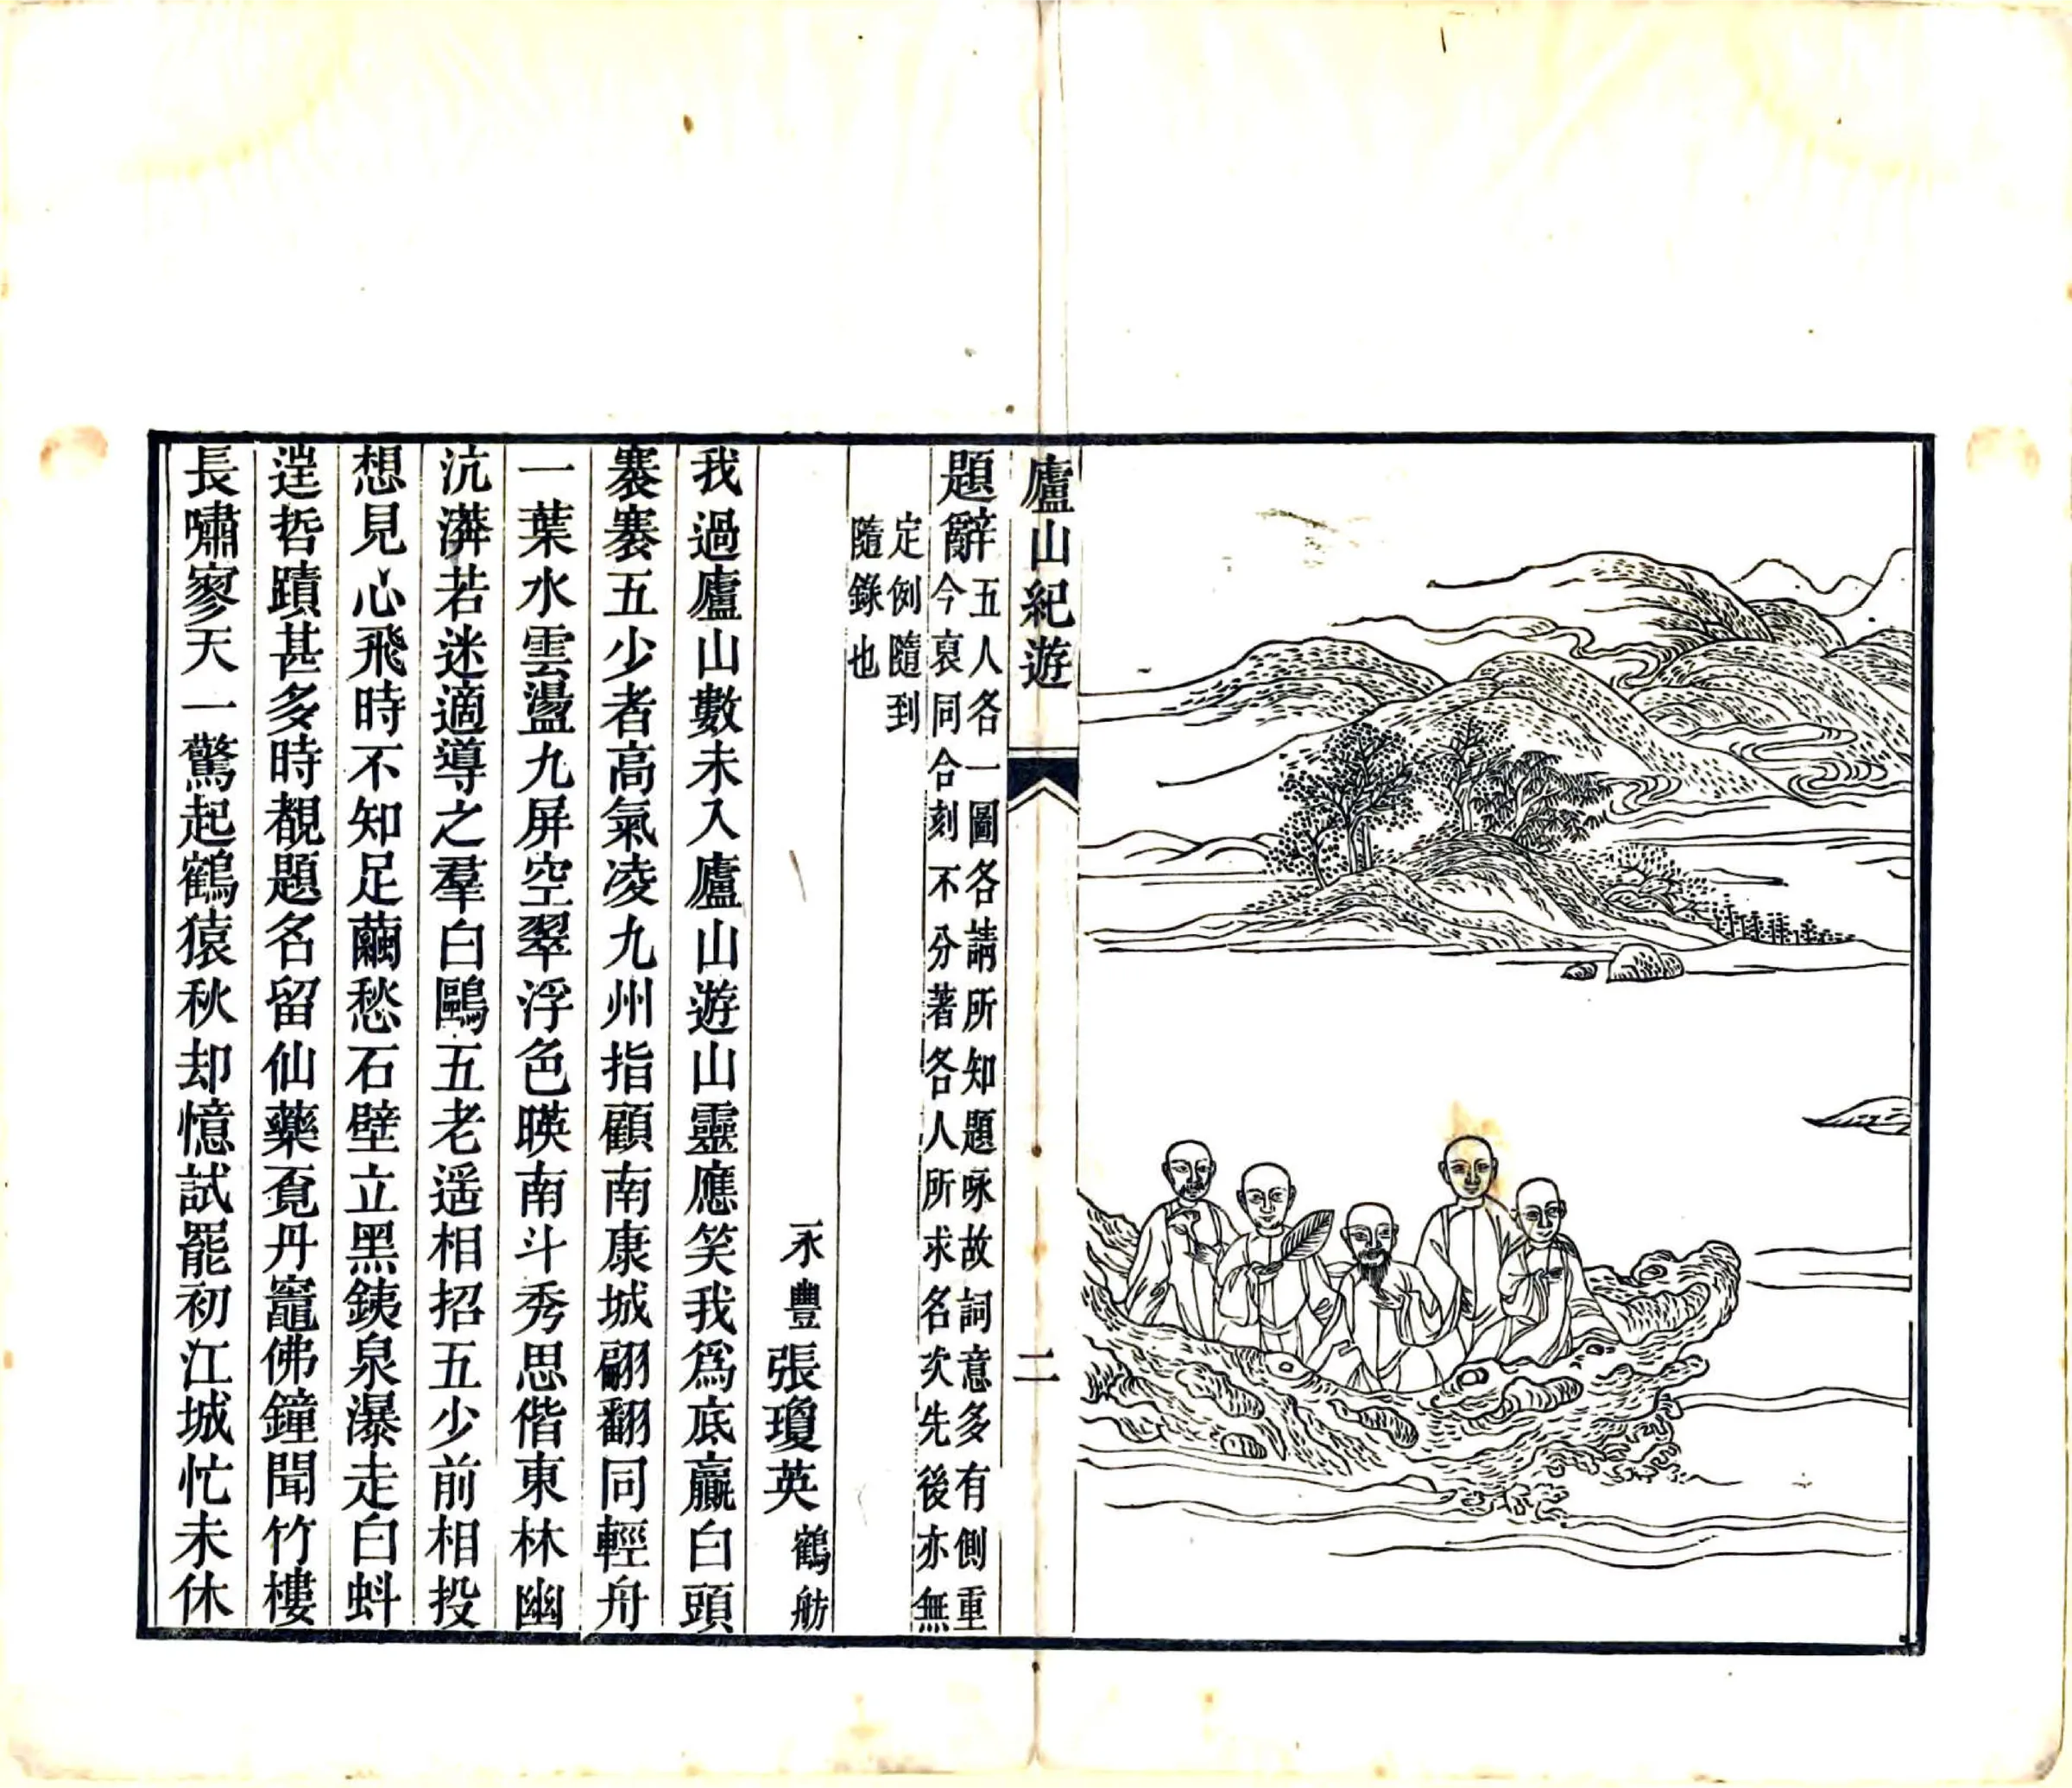 廬山紀遊
二
題辭五人各一圖各請所知題咏故詞意多有側重
今裒同合刻不分著各人所求名次先後亦無
定例隨到
隨錄也
永豐張瓊英鶴舫
我過廬山數未入廬山遊山靈應笑我爲底羸白頭
褰褰五少者高氣凌九州指顧南康城翩翻同輕舟
一葉水雲盪九屏空翠浮色暎南斗秀思偕東林幽
沆漭若迷適導之羣白鷗五老遥相招五少前相投
想見心飛時不知足繭愁石壁立黑銕泉瀑走白蚪
逞哲蹟甚多時覩題名留仙藥覔丹竈佛鐘聞竹樓
長嘯寥天一驚起鶴猿秋却憶試罷初江城忙未休